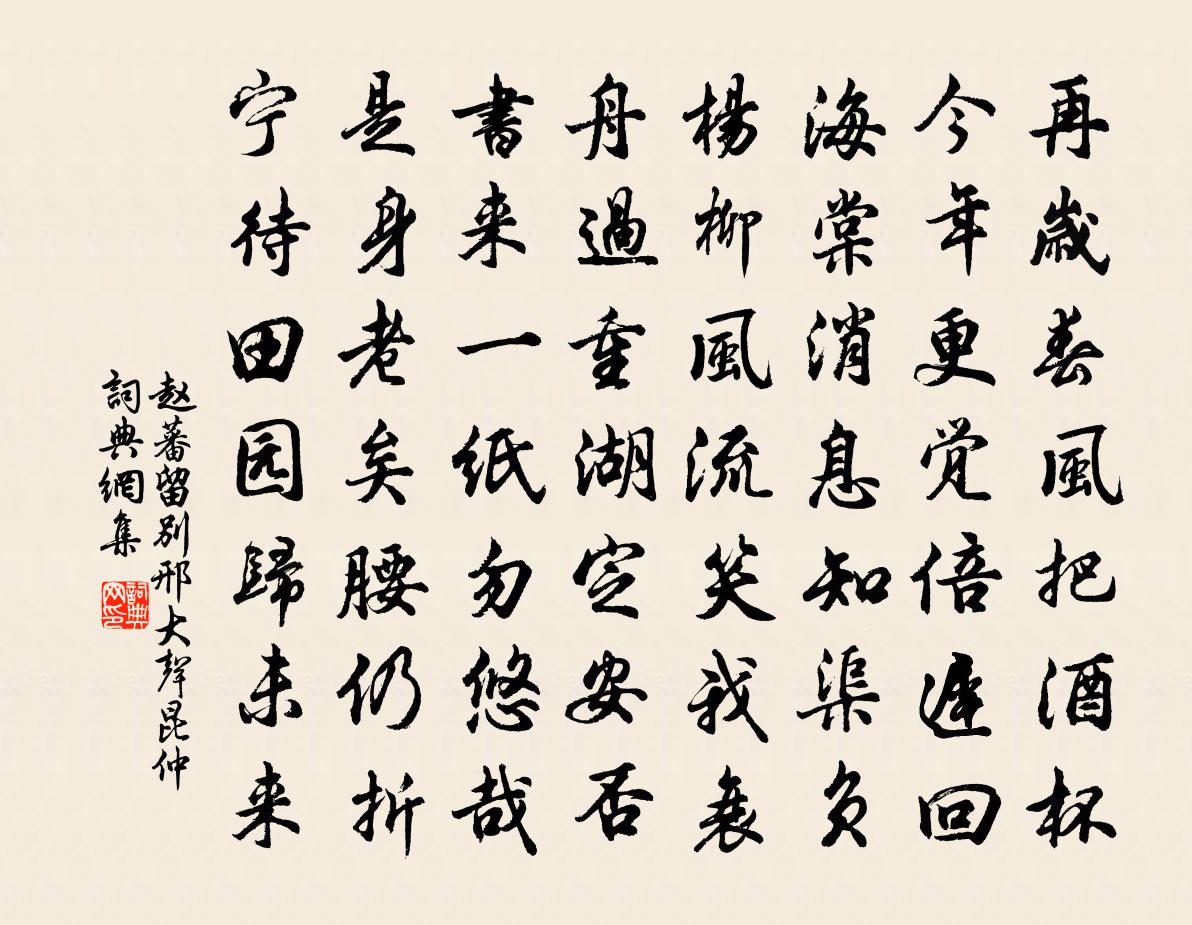 再歲春風把酒杯
今年更觉倍遲回
海棠消息知渠負
楊柳風流笑我衰
舟過重湖定安否
書来一纸勿悠哉
是身老矣腰仍折
宁待田园歸未来
赵蕃留別邢大聲昆仲
詞典網集
詞典网印